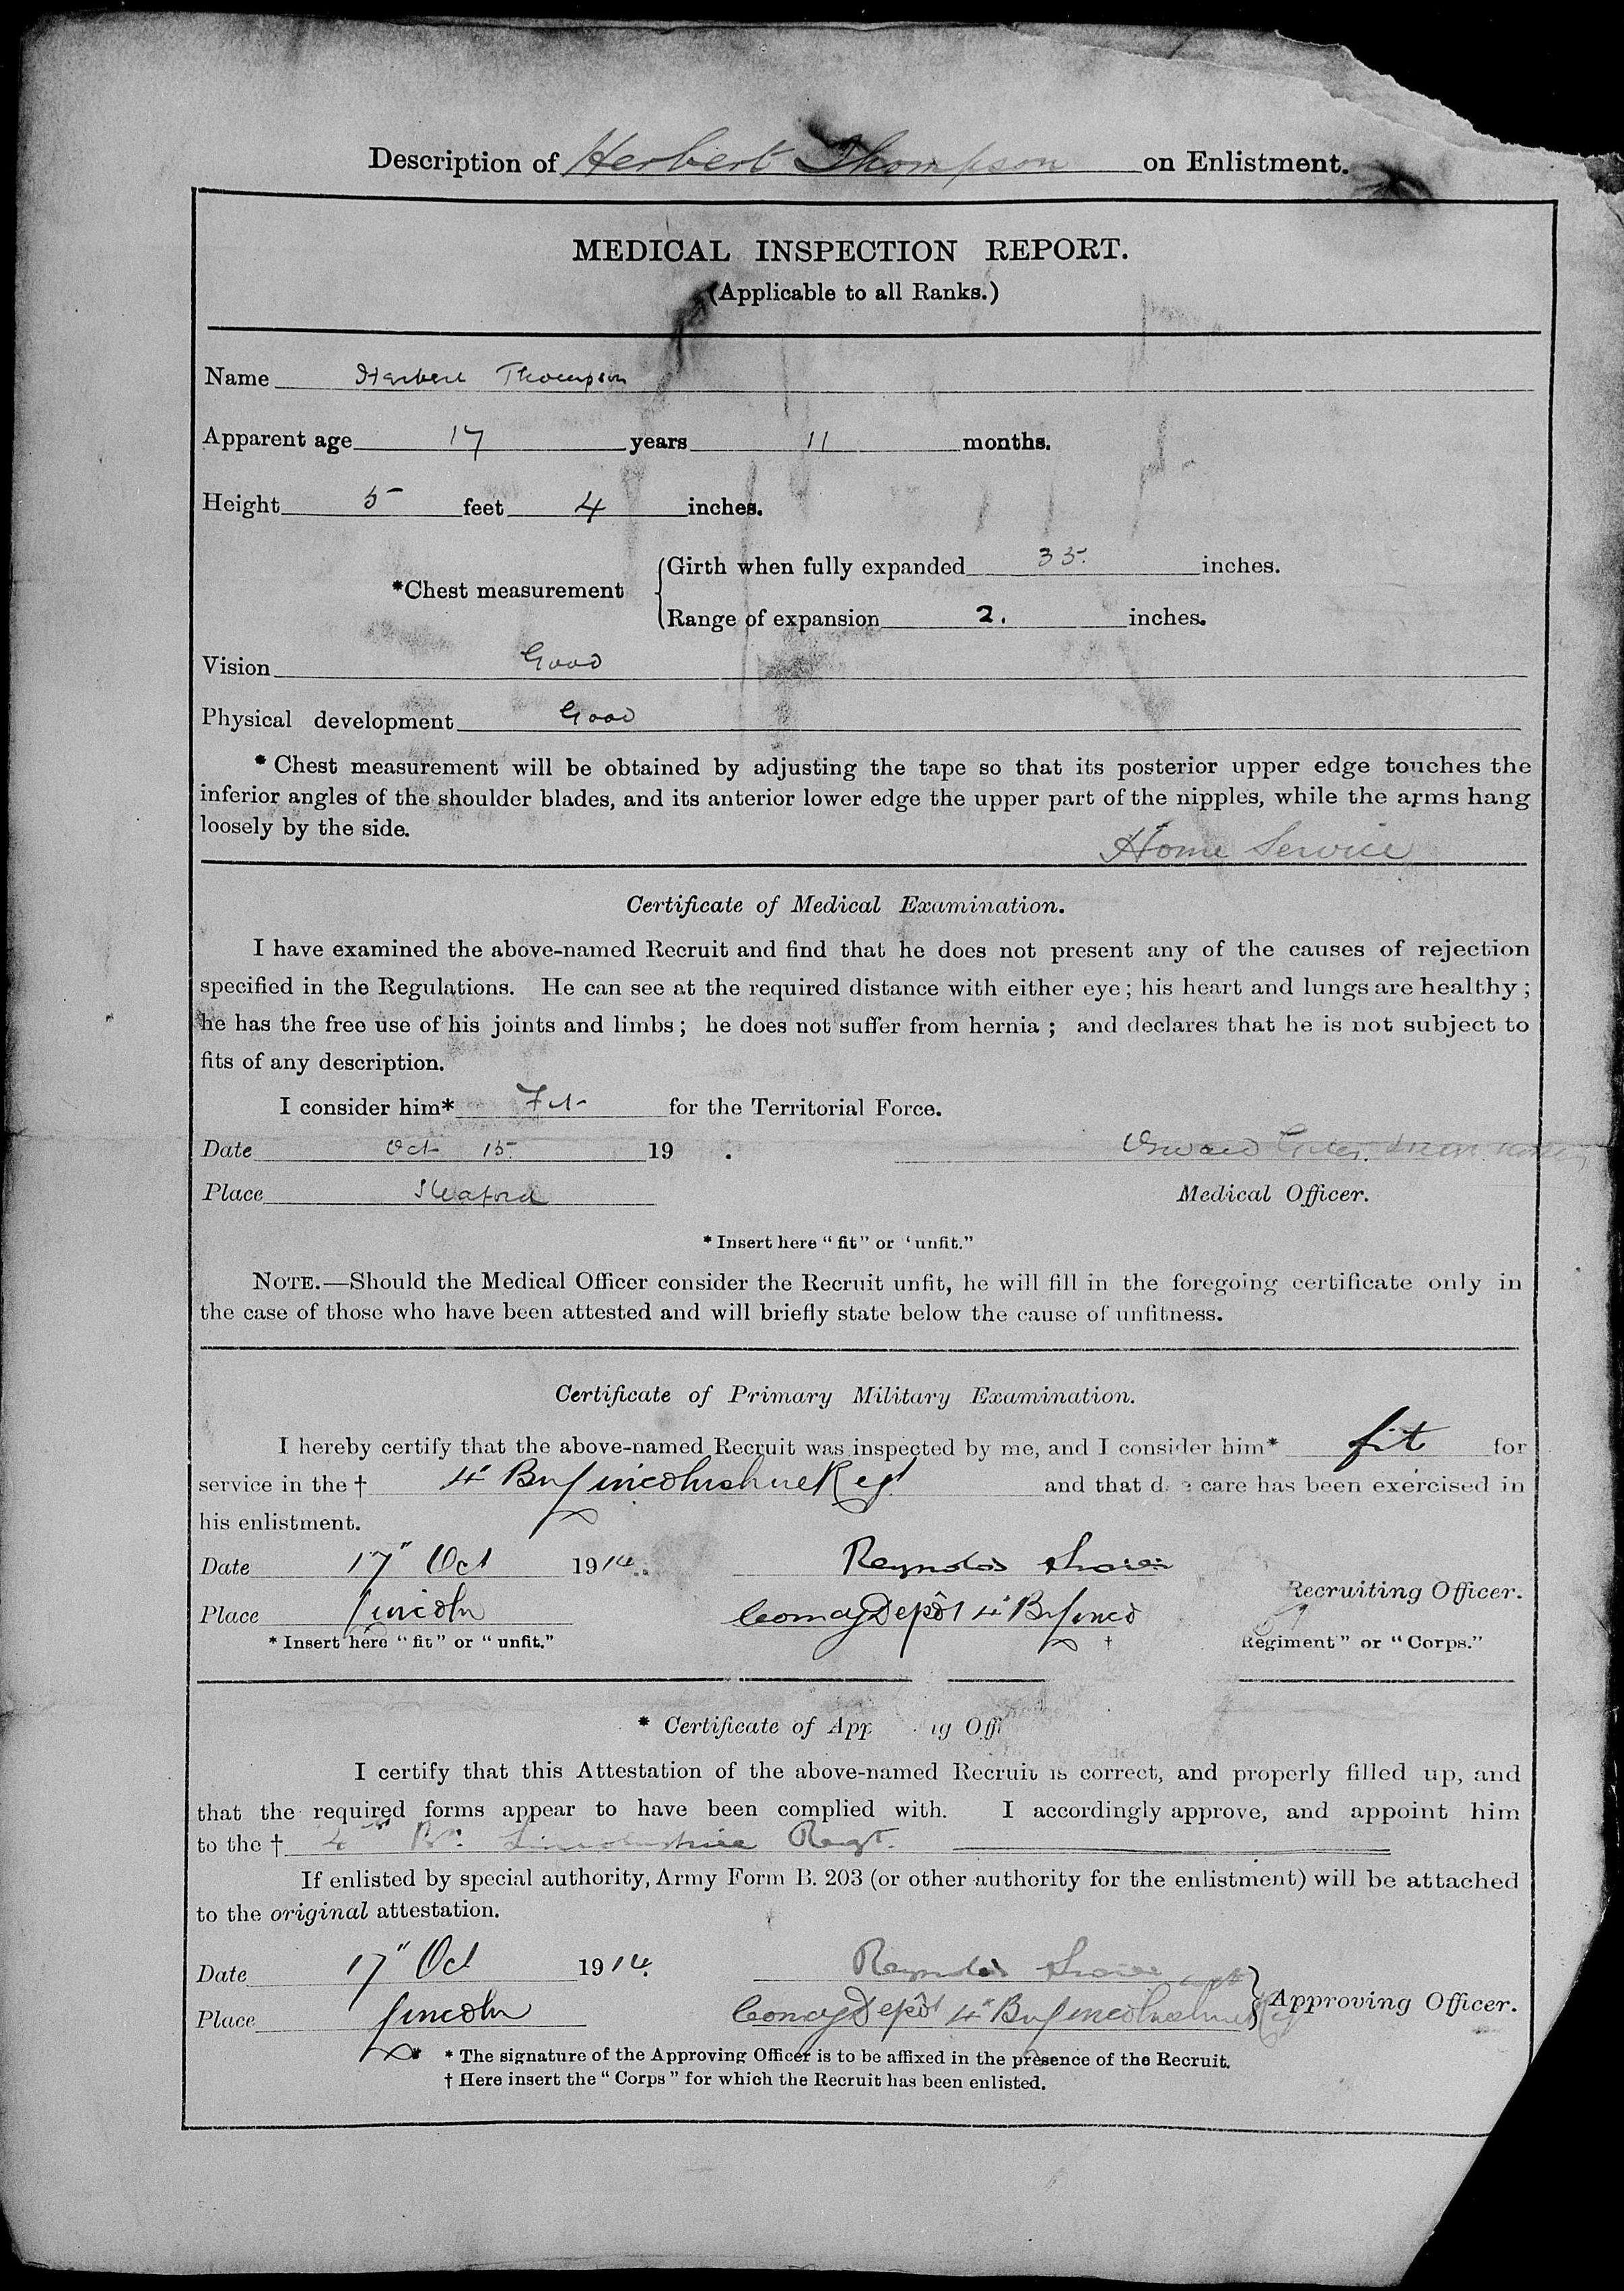 Description of Herbert Thompson on Enlistment.
MEDICAL INSPECTION REPORT.
(Applicable to all Ranks.)
Name Herbert Thompson
Apparent age 17 years 11 months.
Height 5 feet 4 inches.
*Chest measurement
Girth when fully expanded 35. inches.
Range of expansion 2. inches.
Vision Good
Physical development Good
* Chest measurement will be obtained by adjusting the tape so that its posterior upper edge touches the
inferior angles of the shoulder blades, and its anterior lower edge the upper part of the nipples, while the arms hang
loosely by the side.
Home Service
Certificate of Medical Examination.
I have examined the above-named Recruit and find that he does not present any of the causes of rejection
specified in the Regulations. He can see at the required distance with either eye; his heart and lungs are healthy;
he has the free use of his joints and limbs; he does not suffer from hernia; and declares that he is not subject to
fits of any description.
I consider him* Fit for the Territorial Force.
Date Oct 15. 19 .
Place Sleaford
Medical Officer.
* Insert here "fit" or 'unfit."
NOTE.—Should the Medical Officer consider the Recruit unfit, he will fill in the foregoing certificate only in
the case of those who have been attested and will briefly state below the cause of unfitness.
Certificate of Primary Military Examination.
I hereby certify that the above-named Recruit was inspected by me, and I consider him* fit for
service in the † 4" Bn Lincolnshire Regt and that d e care has been exercised in
his enlistment.
Date 17" Oct 1914. Reynolds
Recruiting Officer.
Place Lincoln Comdg Depôt 4" Bn Linco
* Insert here "fit" or "unfit." † Regiment" or "Corps."
* Certificate of App ig Offi
I certify that this Attestation of the above-named Recruit is correct, and properly filled up, and
that the required forms appear to have been complied with. I accordingly approve, and appoint him
to the † 4th Bn. Lincolnshire Regt.
If enlisted by special authority, Army Form B. 203 (or other authority for the enlistment) will be attached
to the original attestation.
Date 17" Oct 1914. Reynolds
Approving Officer.
Place Lincoln Comdg Depôt 4" Bn Lincolnshire Reg
* * The signature of the Approving Officer is to be affixed in the presence of the Recruit.
† Here insert the "Corps" for which the Recruit has been enlisted.